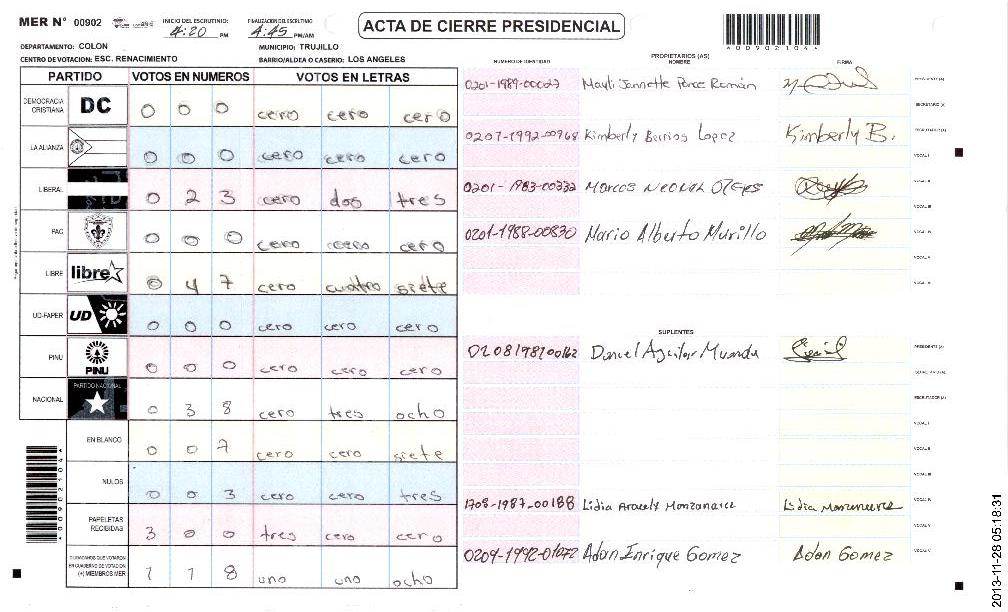 MER N° 00902
INICIO DEL ESCRUTINIO: 4:20 PM
FINALIZACION DEL ESCRUTINIO 4:45 PM/AM
ACTA DE CIERRE PRESIDENCIAL
40090210 4
DEPARTAMENTO: COLON
MUNICIPIO: TRUJILLO
CENTRO DE VOTACION: ESC. RENACIMIENTO
BARRIO/ALDEA O CASERIO: LOS ANGELES
PARTIDO VOTOS EN NUMEROS VOTOS EN LETRAS
DEMOCRACIA CRISTIANA DC 0 0 0 cero cero cero
LA ALIANZA 0 0 0 cero cero cero
LIBERAL 0 2 3 cero dos tres
PAC 0 0 0 cero cero cero
LIBRE libre 0 4 7 cero cuatro siete
UD-FAPER UD 0 0 0 cero cero cero
PINU PINU 0 0 0 cero cero cero
NACIONAL PARTIDO NACIONAL 0 3 8 cero tres ocho
EN BLANCO 0 0 7 cero cero siete
NULOS 0 0 3 cero cero tres
PAPELETAS RECIBIDAS 3 0 0 tres cero cero
CIUDADANOS QUE VOTARON EN CUADERNO DE VOTACION (+) MIEMBROS MER 1 1 8 uno uno ocho
NUMERO DE IDENTIDAD PROPIETARIOS (AS) NOMBRE FIRMA
0201-1989-00027 Mayli Jannette Ponce Román PRESIDENTE (A)
SECRETARIO (A)
0207-1992-00968 Kimberly Berrios Lopez Kimberly B. ESCRUTADOR (A)
VOCAL I
0201-1983-00332 Marcos VOCAL II
VOCAL III
0201-1988-00830 Mario Alberto Murillo VOCAL IV
VOCAL V
SUPLENTES
0208198700162 Daniel Aguilar PRESIDENTE (A)
SECRETARIO (A)
ESCRUTADOR (A)
VOCAL I
VOCAL II
VOCAL III
1708-1987-00188 Lidia Aracely Manzanares Lidia Manzanares VOCAL IV
VOCAL V
0209-1992-01072 Adan Enrique Gomez Adan Gomez
2013-11-28 05:18:31